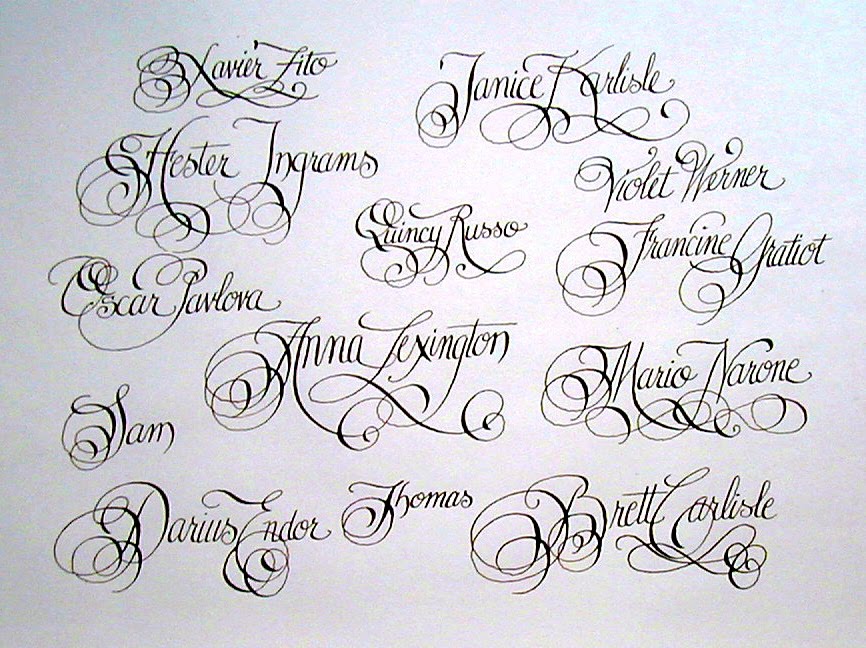 Xavier Zito
Janice Karlisle
Hester Ingrams
Violet Werner
Quincy Russo
Francine Gratiot
Oscar Pavlova
Anna Lexington
Mario Narone
Sam
Darius Endor
Thomas
Brett Carlisle